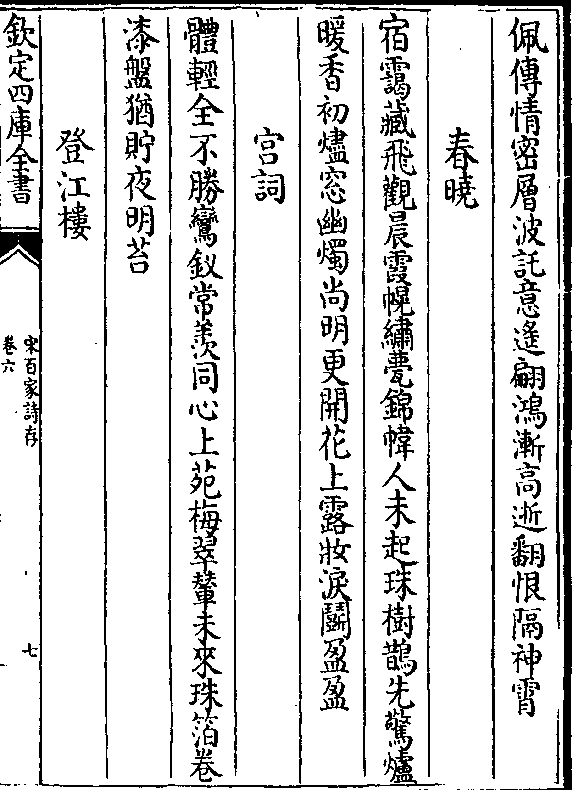 佩傳情密層波託意遙翩鴻漸高逝翻恨隔神霄
春曉
宿靄藏飛觀晨霞幌繡甍錦幃人未起珠樹鵲先驚爐
暖香初燼窓幽燭尚明更開花上露妝淚鬬盈盈
宫詞
體輕全不勝鸞釵常羨同心上苑梅翠輦未來珠箔卷
漆盤猶貯夜明苔
登江樓
欽定四庫全書
宋百家詩存
卷六
七